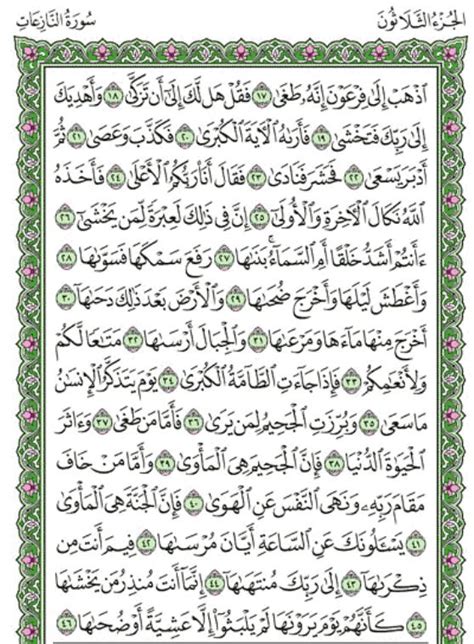 الجزء الثلاثون
سورة النازعات
اَذْهَبْ إِلَىٰ فِرْعَوْنَ إِنَّهُۥ طَغَىٰ ١٧ فَقُلْ هَل لَّكَ إِلَىٰٓ أَن تَزَكَّىٰ ١٨ وَأَهْدِيَكَ
إِلَىٰ رَبِّكَ فَتَخْشَىٰ ١٩ فَأَرَىٰهُ ٱلْءَايَةَ ٱلْكُبْرَىٰ ٢٠ فَكَذَّبَ وَعَصَىٰ ٢١ ثُمَّ
أَدْبَرَ يَسْعَىٰ ٢٢ فَحَشَرَ فَنَادَىٰ ٢٣ فَقَالَ أَنَا۠ رَبُّكُمُ ٱلْأَعْلَىٰ ٢٤ فَأَخَذَهُ
ٱللَّهُ نَكَالَ ٱلْءَاخِرَةِ وَٱلْأُولَىٰٓ ٢٥ إِنَّ فِى ذَٰلِكَ لَعِبْرَةً لِّمَن يَخْشَىٰٓ ٢٦
ءَأَنتُمْ أَشَدُّ خَلْقًا أَمِ ٱلسَّمَآءُ ۚ بَنَىٰهَا ٢٧ رَفَعَ سَمْكَهَا فَسَوَّىٰهَا ٢٨
وَأَغْطَشَ لَيْلَهَا وَأَخْرَجَ ضُحَىٰهَا ٢٩ وَٱلْأَرْضَ بَعْدَ ذَٰلِكَ دَحَىٰهَآ ٣٠
أَخْرَجَ مِنْهَا مَآءَهَا وَمَرْعَىٰهَا ٣١ وَٱلْجِبَالَ أَرْسَىٰهَا ٣٢ مَتَٰعًا لَّكُمْ
وَلِأَنْعَٰمِكُمْ ٣٣ فَإِذَا جَآءَتِ ٱلطَّآمَّةُ ٱلْكُبْرَىٰ ٣٤ يَوْمَ يَتَذَكَّرُ ٱلْإِنسَٰنُ
مَا سَعَىٰ ٣٥ وَبُرِّزَتِ ٱلْجَحِيمُ لِمَن يَرَىٰ ٣٦ فَأَمَّا مَن طَغَىٰ ٣٧ وَءَاثَرَ
ٱلْحَيَوٰةَ ٱلدُّنْيَا ٣٨ فَإِنَّ ٱلْجَحِيمَ هِىَ ٱلْمَأْوَىٰ ٣٩ وَأَمَّا مَنْ خَافَ
مَقَامَ رَبِّهِۦ وَنَهَى ٱلنَّفْسَ عَنِ ٱلْهَوَىٰ ٤٠ فَإِنَّ ٱلْجَنَّةَ هِىَ ٱلْمَأْوَىٰ
٤١ يَسْـَٔلُونَكَ عَنِ ٱلسَّاعَةِ أَيَّانَ مُرْسَىٰهَا ٤٢ فِيمَ أَنتَ مِن
ذِكْرَىٰهَآ ٤٣ إِلَىٰ رَبِّكَ مُنتَهَىٰهَآ ٤٤ إِنَّمَآ أَنتَ مُنذِرُ مَن يَخْشَىٰهَا
٤٥ كَأَنَّهُمْ يَوْمَ يَرَوْنَهَا لَمْ يَلْبَثُوٓا۟ إِلَّا عَشِيَّةً أَوْ ضُحَىٰهَا ٤٦